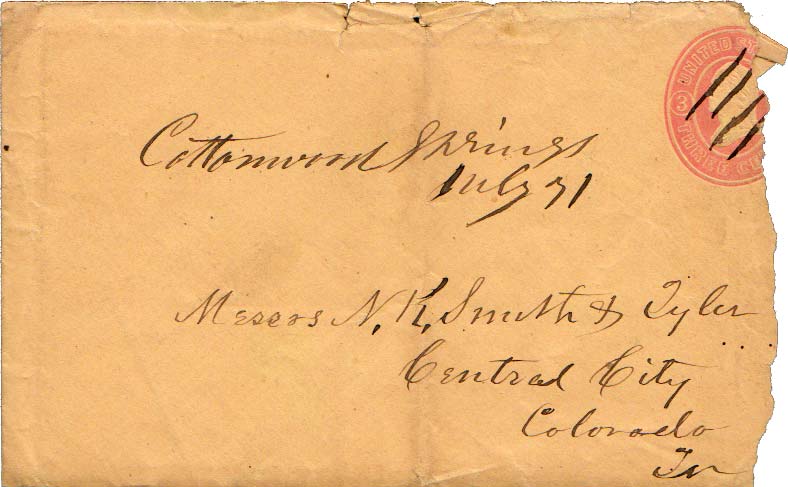 UNITED ST
3
THREE CE
Cottonwood Springs
July 31
Messrs N. K. Smith & Tyler
Central City
Colorado
Ter